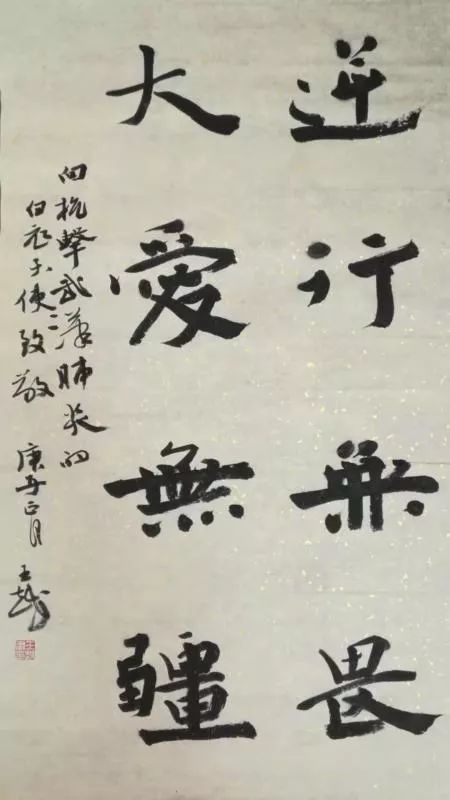 逆行無畏
大愛無疆
向抗擊武漢肺炎的
白衣天使致敬 庚子正月 王